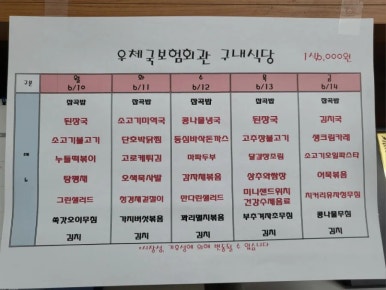 우체국보험회관 구내식당
구분 월 6/10 화 6/11 수 6/12 목 6/13 금 6/14
잡곡밥 잡곡밥 잡곡밥 잡곡밥 잡곡밥
된장국 소고기미역국 콩나물냉국 된장국 김치국
소고기불고기 단호박닭찜 등심바삭돈까스 고추장불고기 생크림카레
누들떡볶이 고로케튀김 마파두부 달걀장조림 소고기오일파스타
탕평채 오색묵사발 감자채볶음 상추와쌈장 어묵볶음
그린샐러드 청경채겉절이 만다린샐러드 미니샌드위치 치커리유자청무침
건강수제음료
쑥갓오이무침 가지버섯볶음 꽈리멸치볶음 부추겨자초무침 콩나물무침
김치 김치 김치 김치 김치